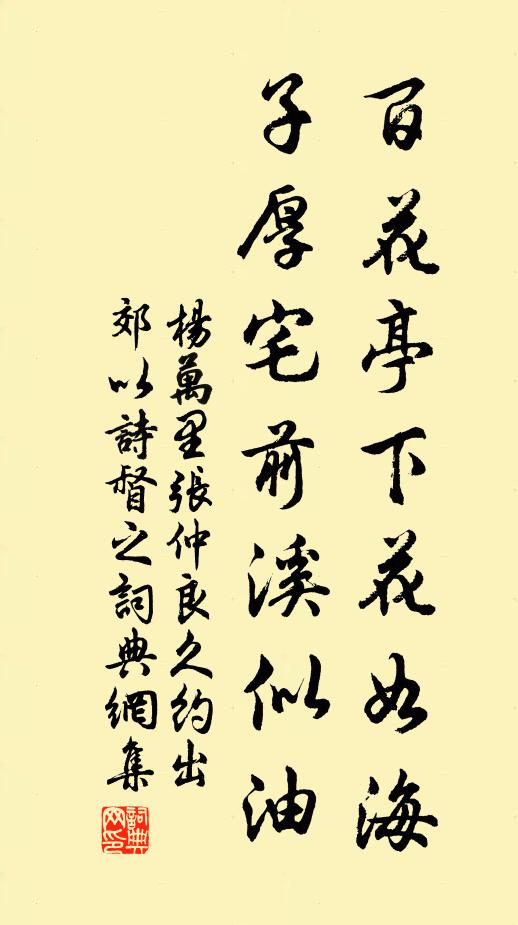 百花亭下花如海
子厚宅前溪似油
楊萬里張仲良久約出
郊以詩督之詞典網集
詞典
网印